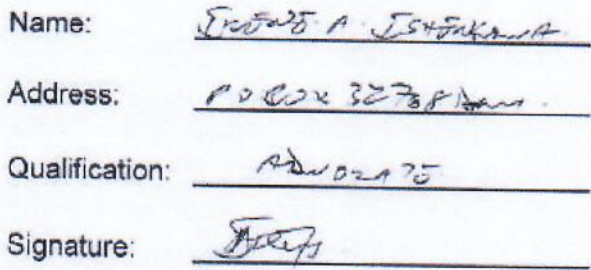 Name: A. ISHENKANWA
Address: P O BOX 32768 Dsm.
Qualification: ADVOCATE
Signature: